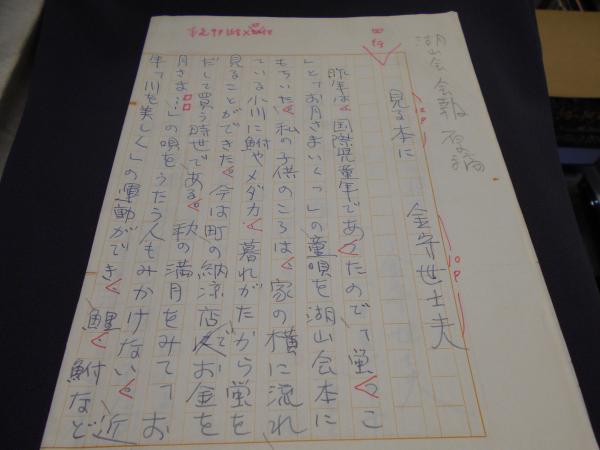 湖山会会報 原稿
見る本に
金守世士夫
昨年は、国際児童年であったので「蛍こ
」と「お月さまいくつ」の童唄を湖山会本に
もちいた。私の子供のころは、家の横に流れ
ている小川に鮒やメダカ、暮れがたから蛍を
見ることができた。今は町の納涼店でお金を
だして買う時世である。秋の満月をみて「お
月さま…」の唄をうたう人もみかけない。近
年「川を美しく」の運動ができ、鯉、鮒など